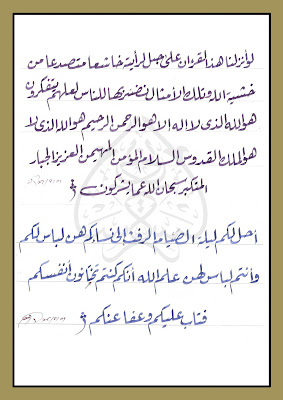 لو أنزلنا هذا لقرءان على جبل لرأيته خاشعا متصدعا من
خشية الله وتلك الأمثال نضربها للناس لعلهم يتفكرون
هو الله الذى لا اله إلا هو الرحمن الرحيم هو الله الذى لا
هو الملك القدوس السلام المؤمن المهيمن العزيز الجبار
المتكبر سبحان الله عما يشركون
أحل لكم ليلة الصيام الرفث الى نسائكم هن لباس لكم
وأنتم لباس لهن علم الله أنكم كنتم تختانون أنفسكم
فتاب عليكم وعفا عنكم